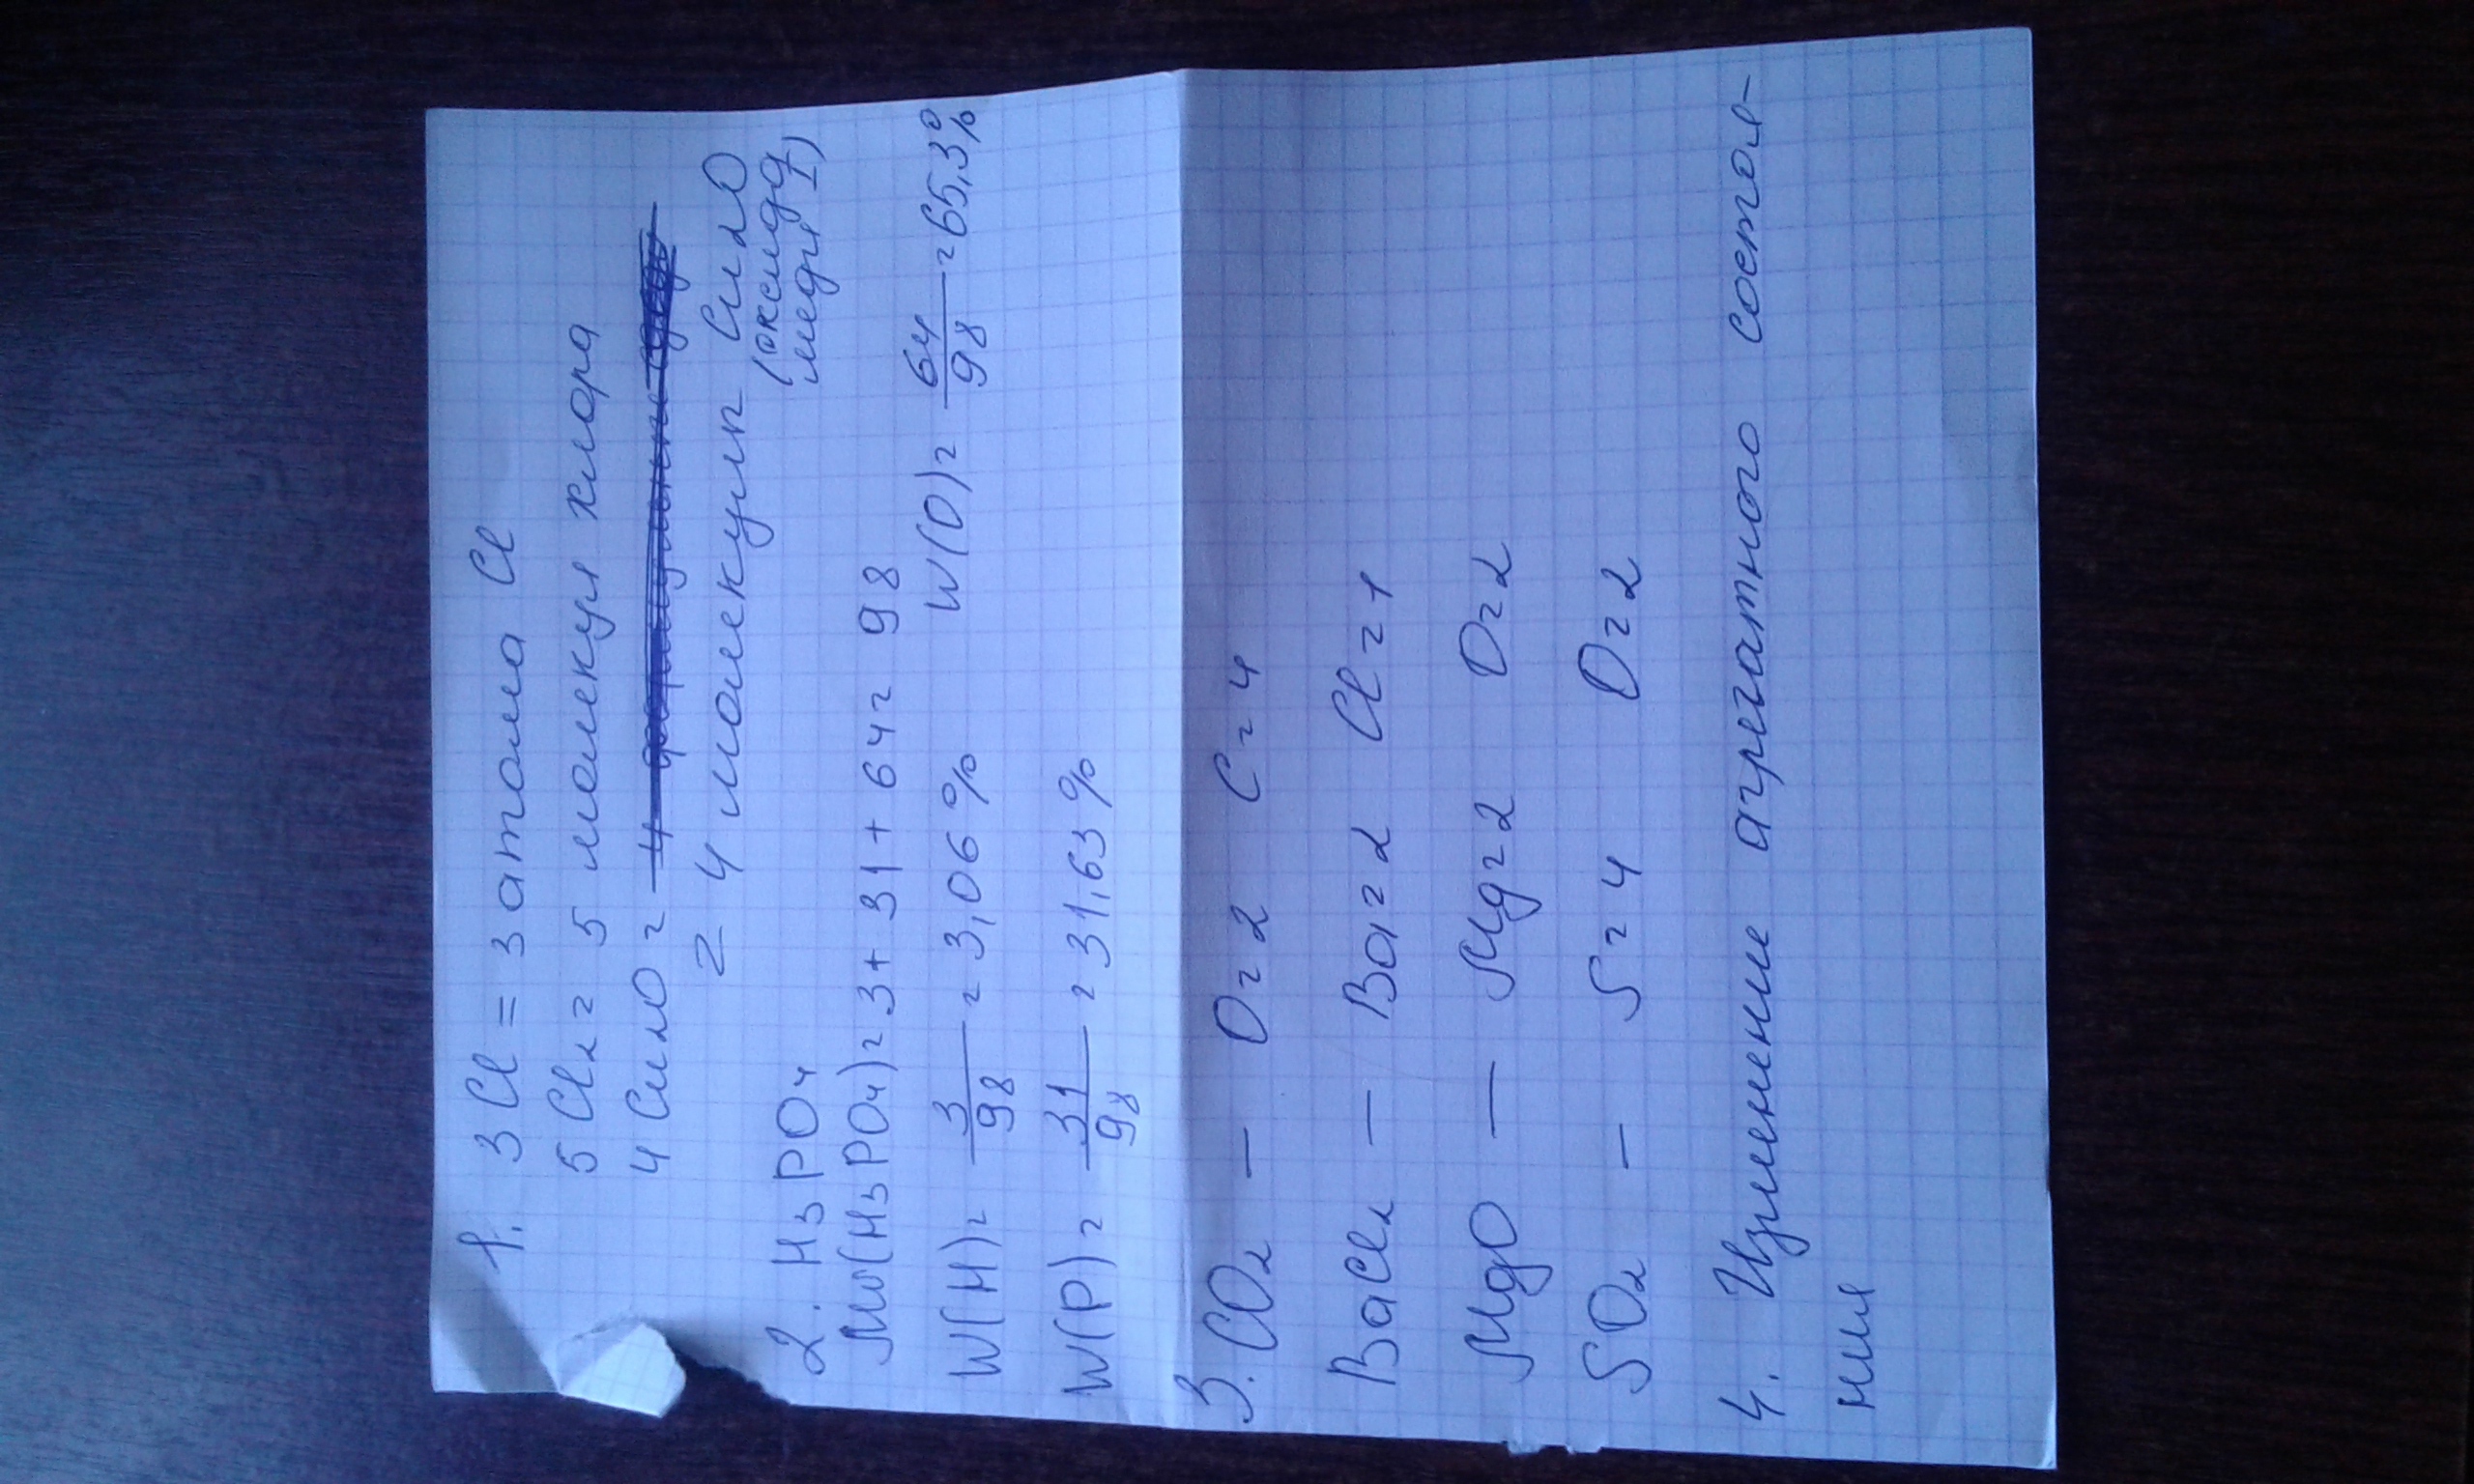 1. 3Cl = 3 атома Cl
5Cl₂ = 5 молекул хлора
4Cu₂O =
= 4 молекулы Cu₂O
(оксид
меди I)
2. H₃PO₄
Mr(H₃PO₄) = 3 + 31 + 64 = 98
W(H) = 3/98 = 3,06% W(O) = 64/98 = 65,3%
W(P) = 31/98 = 31,63%
3. CO₂ — O = 2 C = 4
BaCl₂ — Ba = 2 Cl = 1
MgO — Mg = 2 O = 2
SO₂ — S = 4 O = 2
4. Изменение агрегатного состоя-
ния